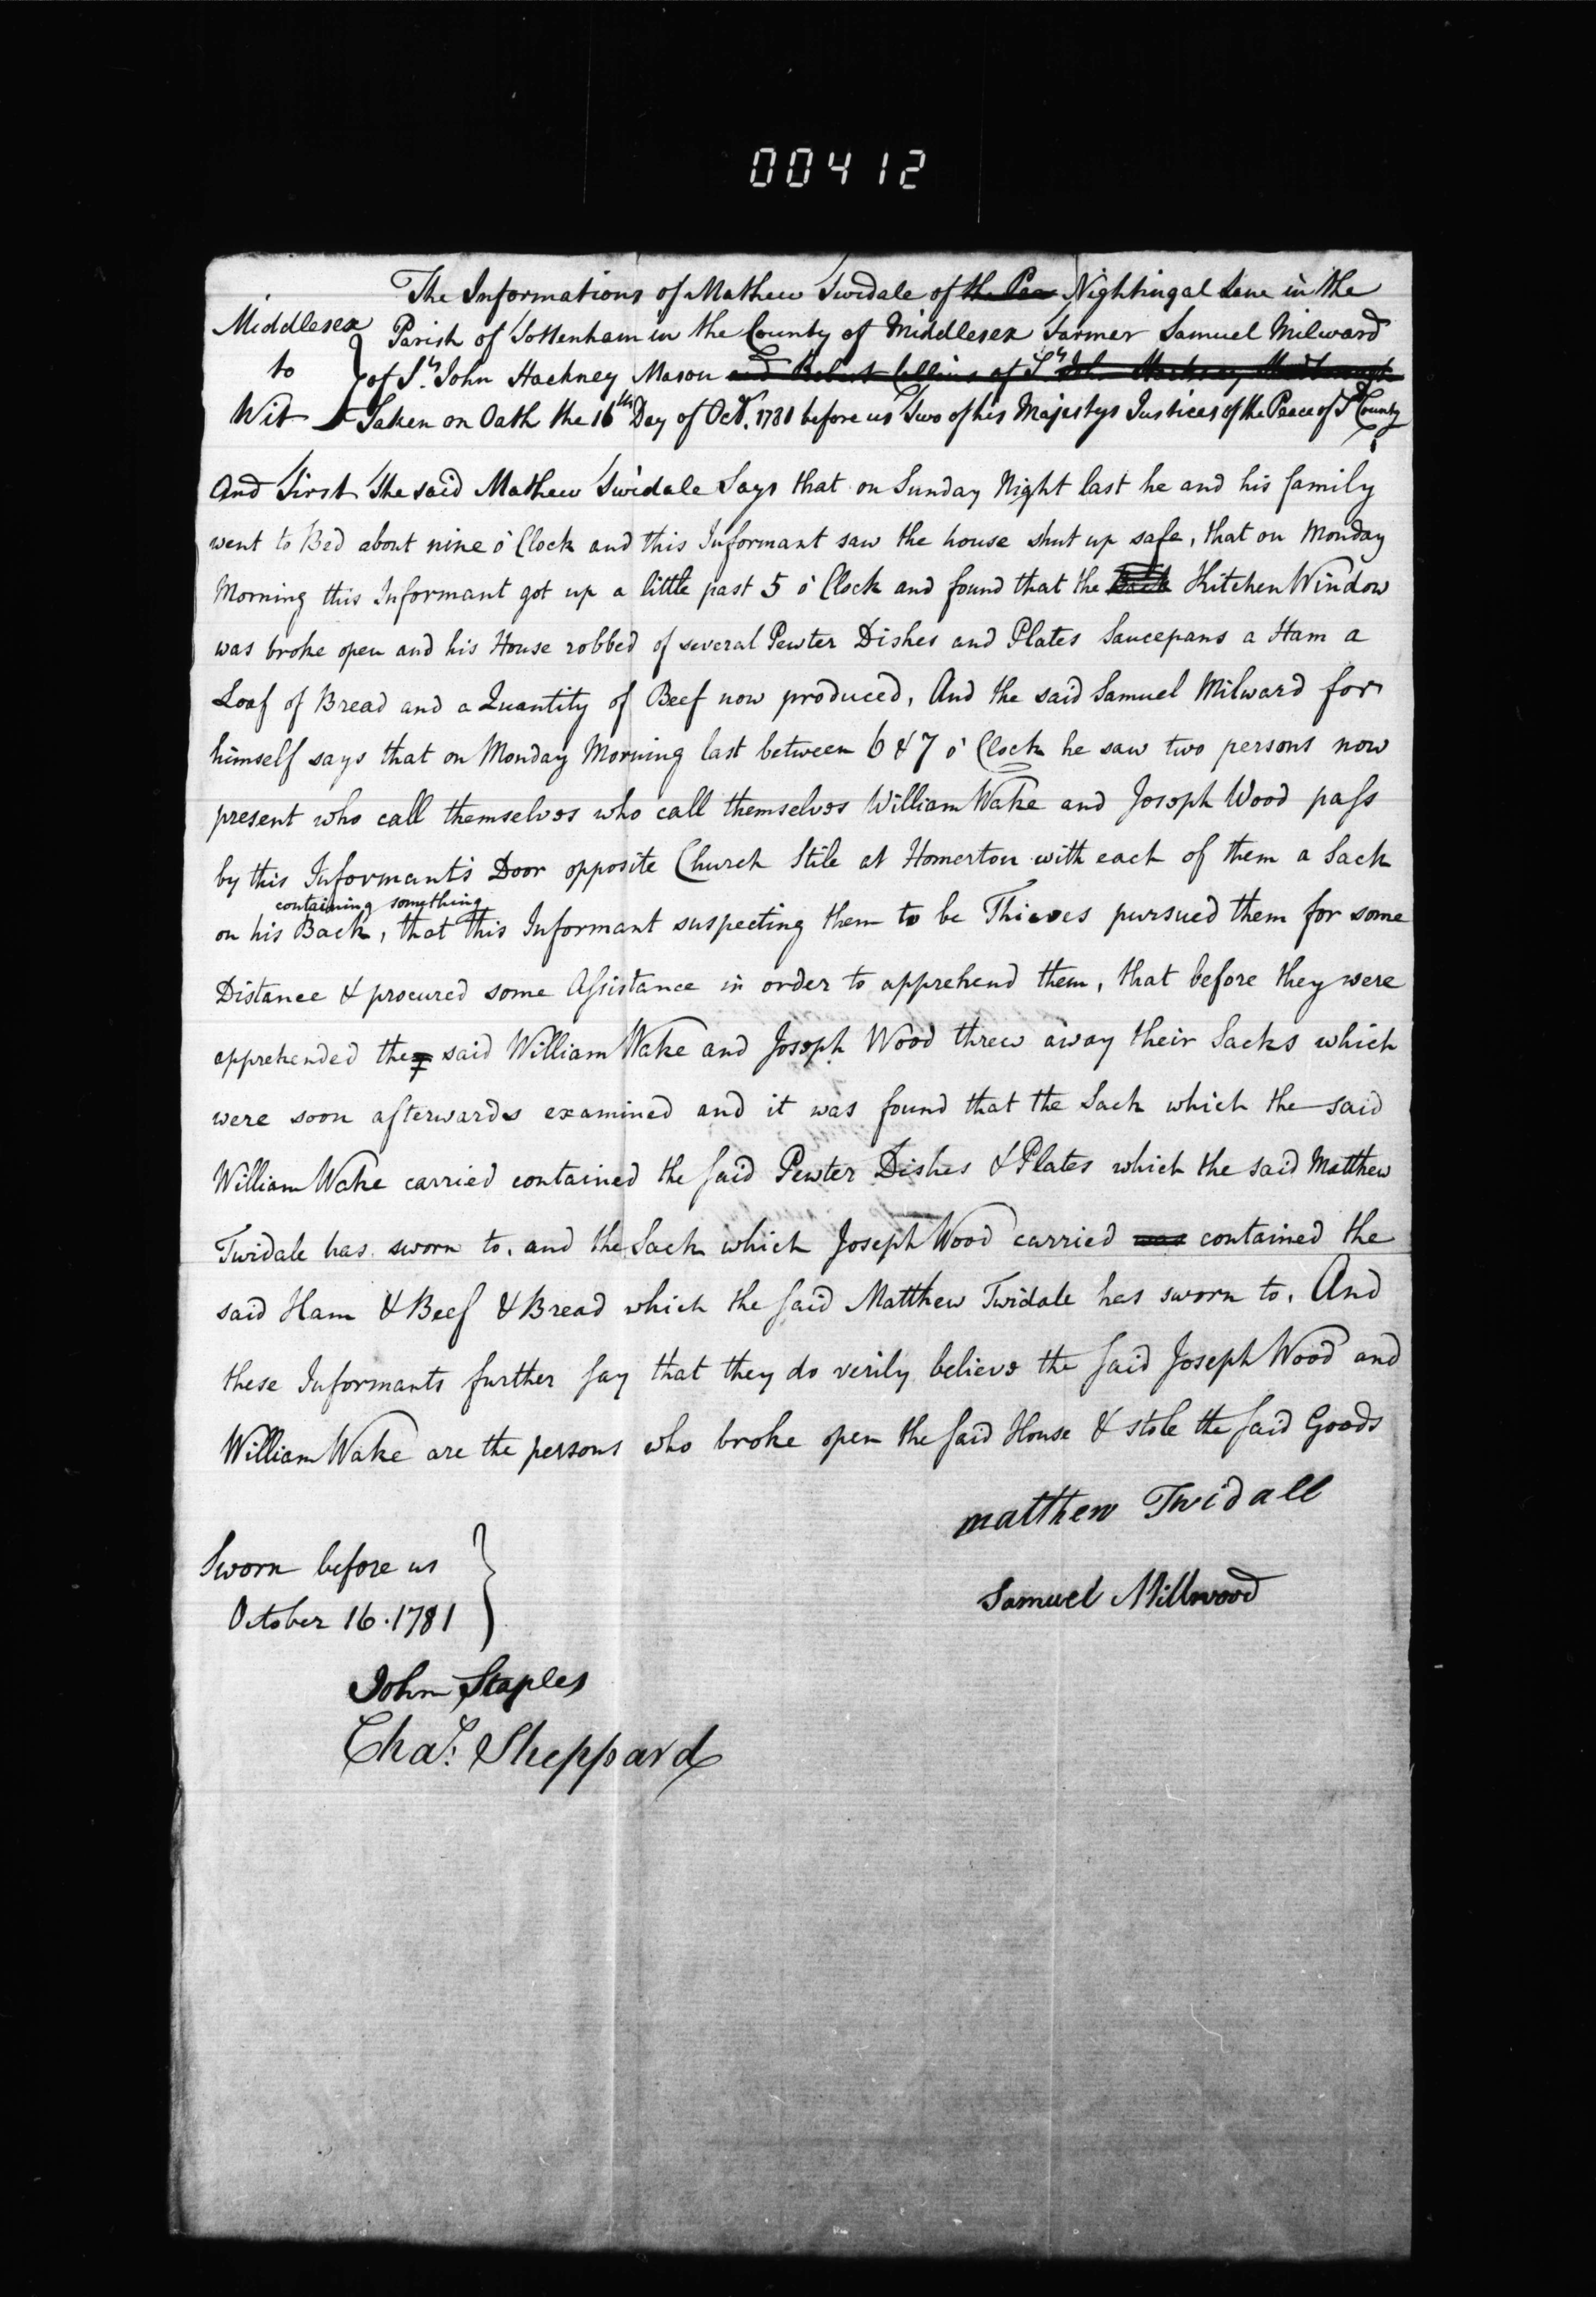 00412
The Informations of Mathew Twidale of the Par Nightingal Lane in the
Middlesex Parish of Tottenham in the County of Middlesex Farmer Samuel Milward
to of St. John Hackney Mason and Robert Collins of St. John Hackney
Wit Taken on Oath the 16th Day of Octr. 1781 before us Two of his Majestys Justices of the Peace of sd County
And First The said Mathew Twidale Says that on Sunday Night last he and his family
went to Bed about nine o'Clock and this Informant saw the house shut up safe, that on Monday
Morning this Informant got up a little past 5 o'Clock and found that the back Kitchen Window
was broke open and his House robbed of several Pewter Dishes and Plates Saucepans a Ham a
Loaf of Bread and a Quantity of Beef now produced, And the said Samuel Milward for
himself says that on Monday Morning last between 6 & 7 o'Clock he saw two persons now
present who call themselves who call themselves William Wake and Joseph Wood pass
by this Informant's Door opposite Church Stile at Homerton with each of them a Sack
containing something
on his Back, that this Informant suspecting them to be Thieves pursued them for some
Distance & procured some Assistance in order to apprehend them, that before they were
apprehended the said William Wake and Joseph Wood threw away their Sacks which
were soon afterwards examined and it was found that the Sack which the said
William Wake carried contained the said Pewter Dishes & Plates which the said Matthew
Twidale has sworn to, and the Sack which Joseph Wood carried was contained the
said Ham & Beef & Bread which the said Matthew Twidale has sworn to. And
these Informants further say that they do verily believe the said Joseph Wood and
William Wake are the persons who broke open the said House & stole the said Goods
matthew Twidall
Sworn before us
Samuel Millwood
October 16. 1781
John Staples
Chas. Sheppard